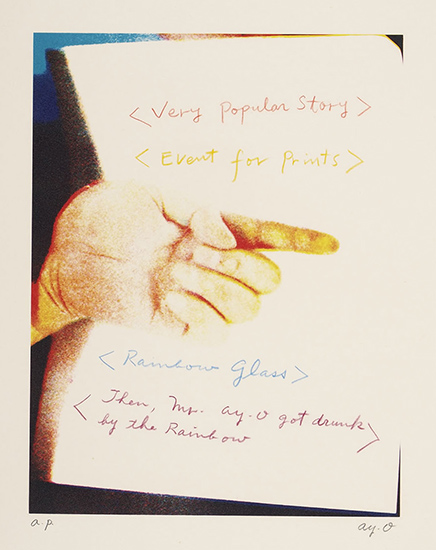 < Very Popular Story >
< Event for Prints >
< Rainbow Glass >
< Then, Mr. ay.O got drunk
by the Rainbow >
a.p. ay.O